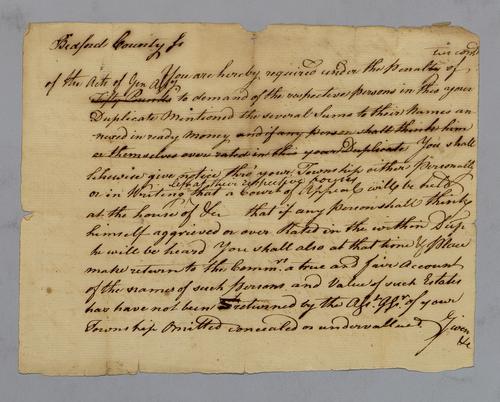 Bedford County Ss
of the Acts of Gen Assy You are hereby required under the Penalty of
Fifty Pounds to demand of the respective Persons in this your
Duplicate Mentioned the several Sums to their Names an
nexed in ready Money and if any Person shall think him
or themselves over rated in this your Duplicate You shall
likewise give notice thro your Township either Personally
or in Writing that a Court of Appeal will be held
at the house of &c that if any Person shall think
himself aggrieved or over Rated in the within Dup
he will be heard You shall also at that time & Place
make return to the Commrs a true and fair Account
of the Names of such Persons and Value of such Estates
has have not been returned by the of your
Township Omitted concealed or undervallued Given
&c